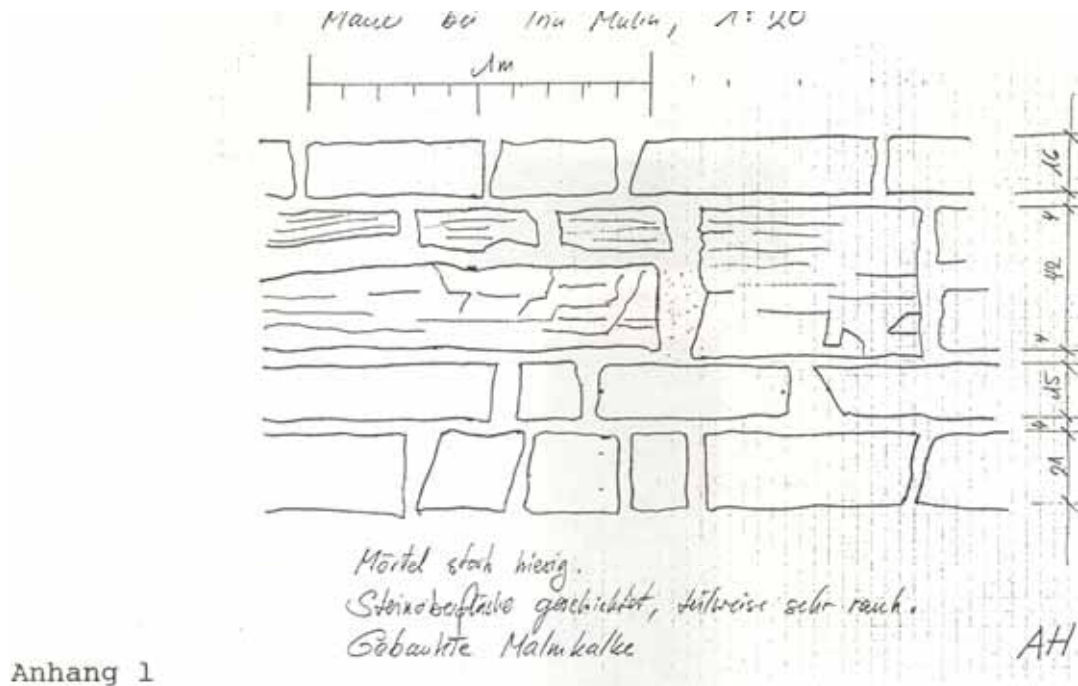 Mauer bei Trin Mulin, 1:20
1m
16
4
42
4
15
4
21
Mörtel stark kiesig.
Steinoberfläche geschichtet, teilweise sehr rauh.
Gebankte Malmkalke
AH
Anhang 1